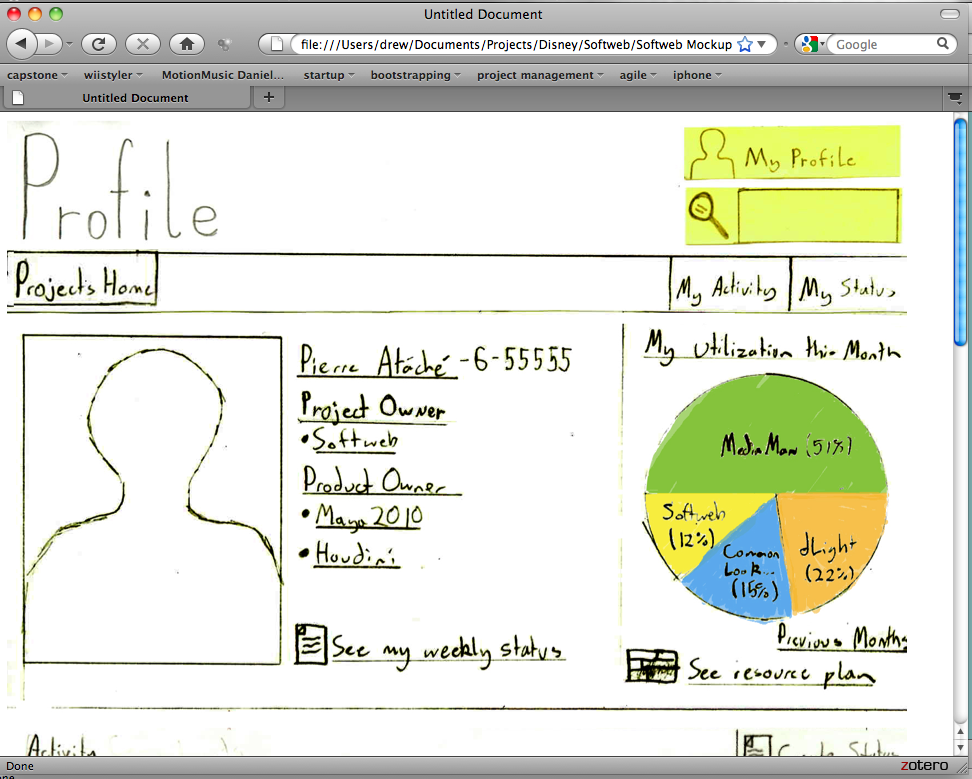 Untitled Document
file:///Users/drew/Documents/Projects/Disney/Softweb/Softweb Mockup
Google
capstone wiistyler MotionMusic Daniel... startup bootstrapping project management agile iphone
Untitled Document
Profile
My Profile
Projects Home
My Activity
My Status
Pierre Atáché - 6-55555
Project Owner
• Softweb
Product Owner
• Maya 2010
• Houdini
See my weekly status
My Utilization this Month
MediaMan (51%)
Softweb
(12%)
Common
Look...
(15%)
dLight
(22%)
Previous Months
See resource plan
Activity
Done
zotero